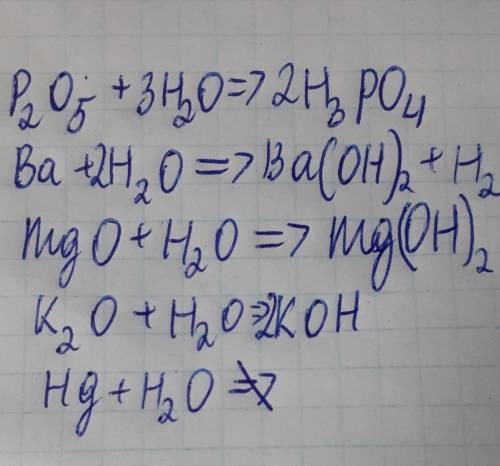 P₂O₅ + 3H₂O => 2H₃PO₄
Ba + 2H₂O => Ba(OH)₂ + H₂
MgO + H₂O => Mg(OH)₂
K₂O + H₂O => 2KOH
Hg + H₂O ≠>